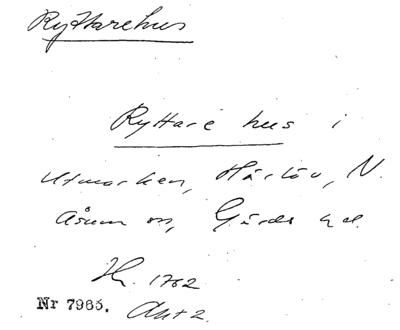 Ryttarehus
Ryttare hus i
utmarken, Härlöv, N.
Åsum sn, Gärds hd.
H. 1762
Nr 7965. Akt 2.